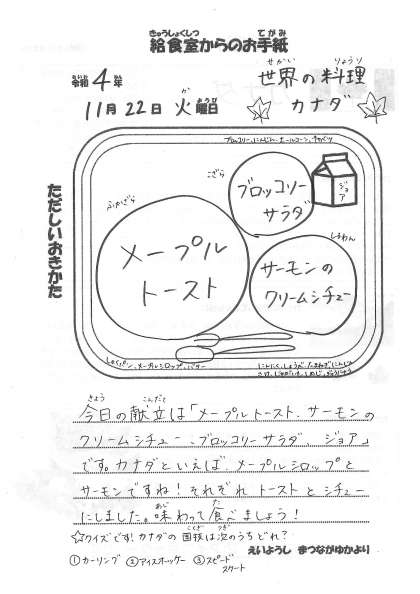 給食室からのお手紙
令和4年
世界の料理
11月22日 火曜日
カナダ
ただしいおきかた
ブロッコリー、にんじん、ホールコーン、キャベツ
こざら
ブロッコリー
サラダ
ジョア
ふかざら
メープル
トースト
しるわん
サーモンの
クリームシチュー
しょくパン、メープルシロップ、バター
にんにく、しょうが、たまねぎ、にんじん
さけ、じゃがいも、しめじ
今日の献立は「メープルトースト、サーモンの
クリームシチュー、ブロッコリーサラダ、ジョア」
です。カナダといえば、メープルシロップと
サーモンですね!それぞれトーストとシチュー
にしました。味わって食べましょう!
☆クイズです!カナダの国技は次のうちどれ?
えいようし まつながゆかより
①カーリング ②アイスホッケー ③スピード
スケート